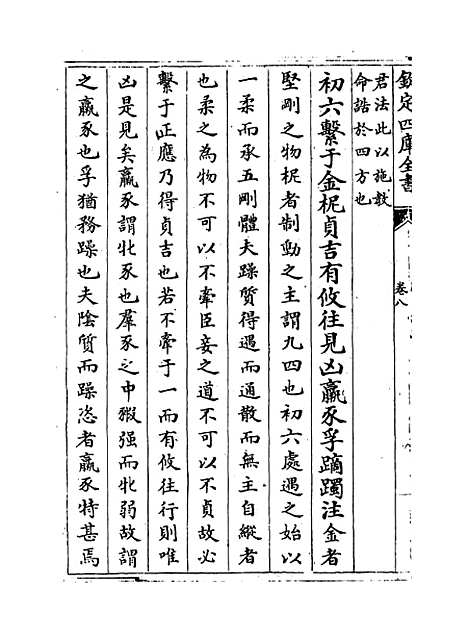 欽定四庫全書
卷八
君法此以施教
命誥於四方也
初六繫于金柅貞吉有攸往見凶羸豕孚蹢躅注金者
堅剛之物柅者制動之主謂九四也初六處遇之始以
一柔而承五剛體夫躁質得遇而通散而無主自縱者
也柔之為物不可以不牽臣妾之道不可以不貞故必
繫于正應乃得貞吉也若不牽于一而有攸往行則唯
凶是見矣羸豕謂牝豕也羣豕之中豭强而牝弱故謂
之羸豕也孚猶務躁也夫陰質而躁恣者羸豕特甚焉